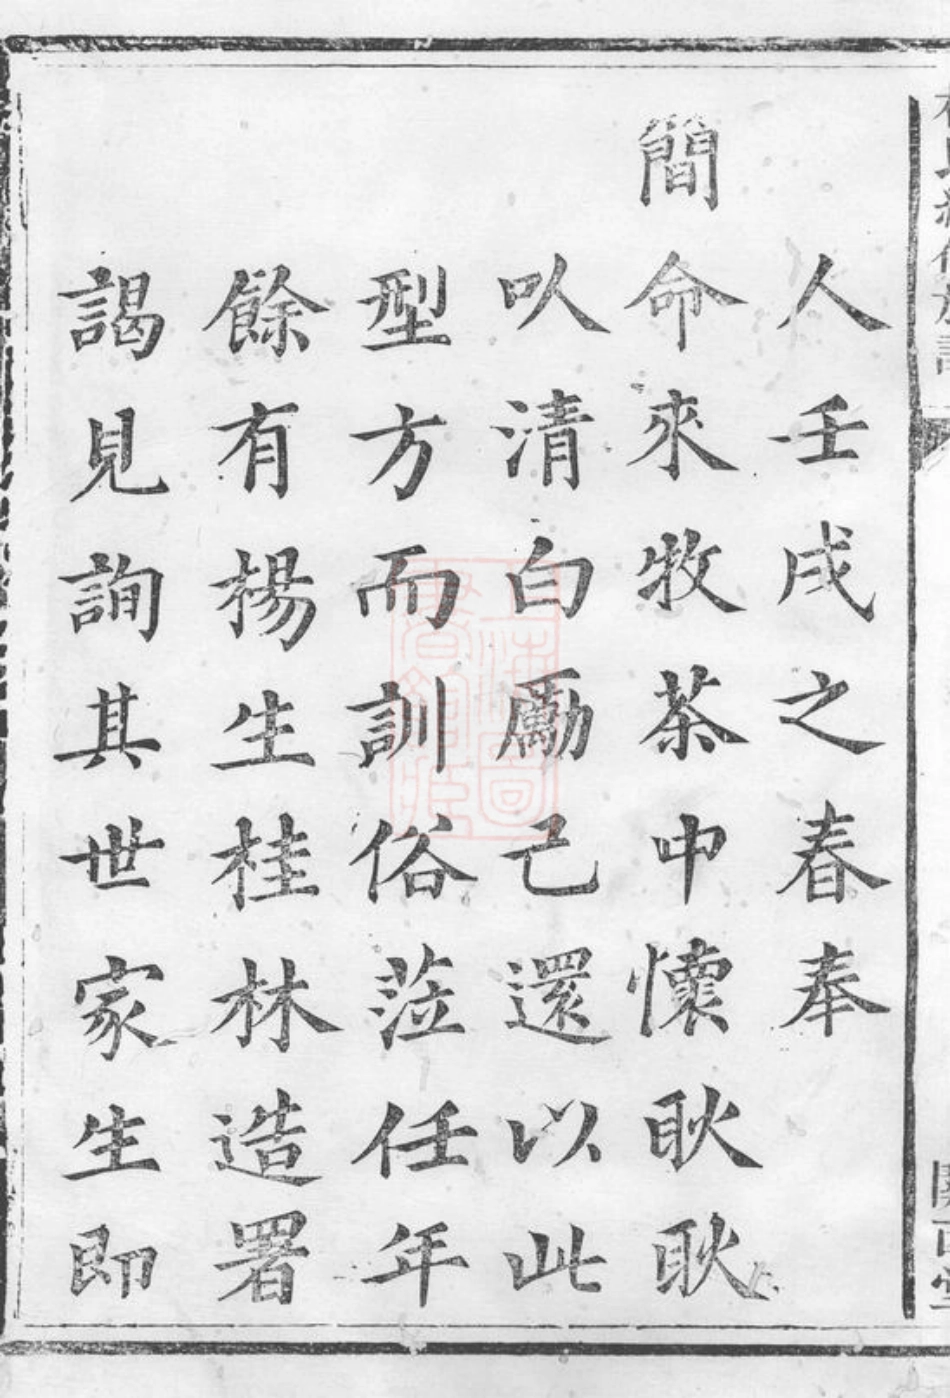 人壬戌之春奉
簡命來牧茶中懷耿耿
㕥清白勵己還以此
型方而訓俗蒞任年
餘有楊生桂林造署
謁見詢其世家生即